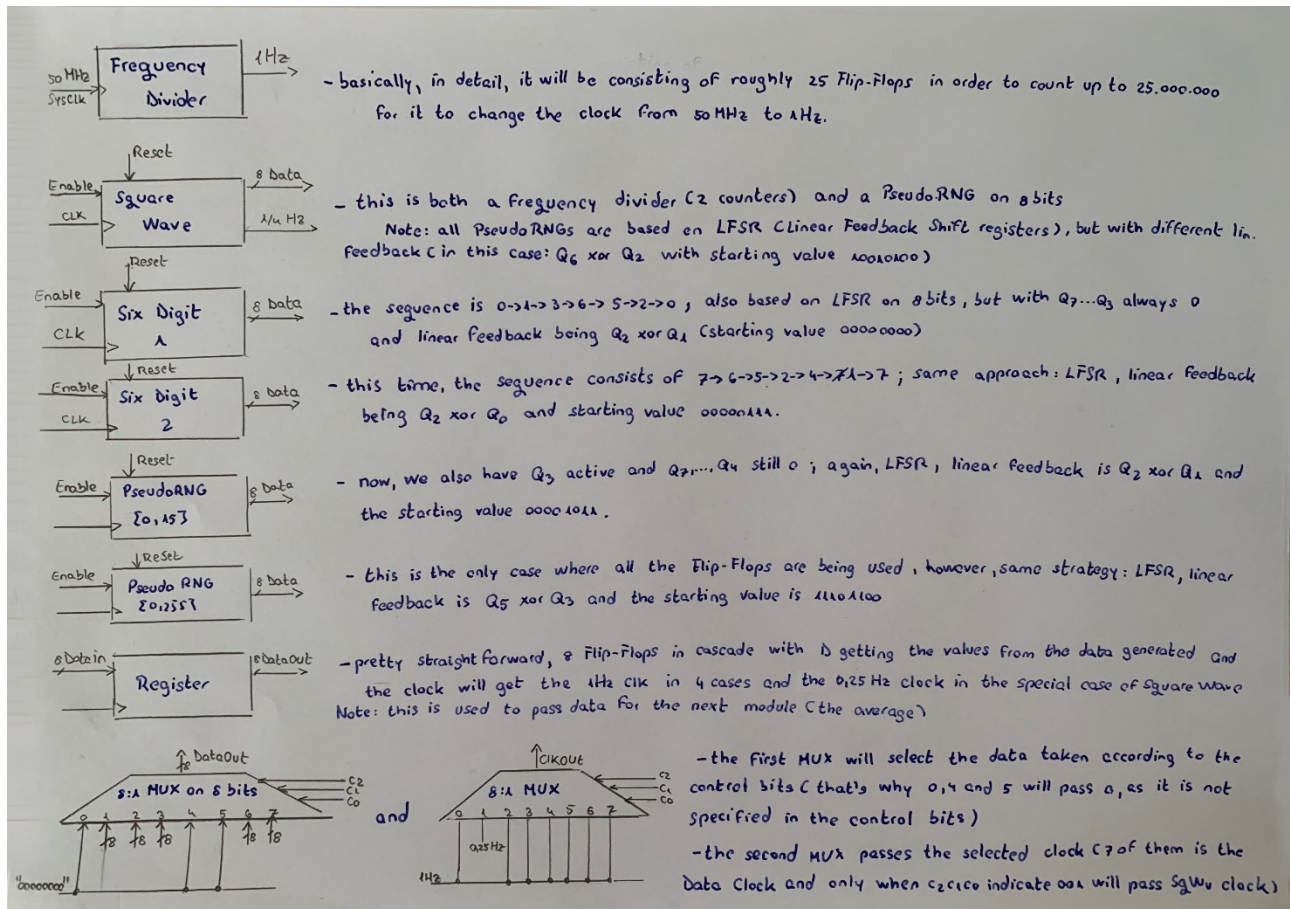 50 MHz
SysClk
Frequency
Divider
1Hz
- basically, in detail, it will be consisting of roughly 25 Flip-Flops in order to count up to 25.000.000
for it to change the clock from 50 MHz to 1Hz.
Reset
Enable
CLK
Square
Wave
8 Data
1/4 Hz
- this is both a frequency divider (2 counters) and a PseudoRNG on 8 bits
Note: all PseudoRNGs are based on LFSR (Linear Feedback Shift registers), but with different lin.
feedback (in this case: Q6 xor Q2 with starting value 10010100)
Reset
Enable
CLK
Six Digit
1
8 Data
- the sequence is 0->1->3->6->5->2->0; also based on LFSR on 8 bits, but with Q7...Q3 always 0
and linear feedback being Q2 xor Q1 (starting value 00000000)
Reset
Enable
CLK
Six Digit
2
8 Data
- this time, the sequence consists of 7->6->5->2->4->1->7; same approach: LFSR, linear feedback
being Q2 xor Q0 and starting value 00000111.
Reset
Enable
PseudoRNG
{0,15}
8 Data
- now, we also have Q3 active and Q7,...,Q4 still 0; again, LFSR, linear feedback is Q2 xor Q1 and
the starting value 00001011.
Reset
Enable
Pseudo RNG
{0,255}
8 Data
- this is the only case where all the Flip-Flops are being used, however, same strategy: LFSR, linear
feedback is Q5 xor Q3 and the starting value is 11101100
8 DataIn
Register
8 DataOut
- pretty straight forward, 8 Flip-Flops in cascade with D getting the values from the data generated and
the clock will get the 1Hz clk in 4 cases and the 0,25 Hz clock in the special case of Square Wave
Note: this is used to pass data for the next module (the average)
8 DataOut
8:1 MUX on 8 bits
C2
C1
C0
0 1 2 3 4 5 6 7
8 8 8 8 8
"00000000"
and
ClkOut
8:1 MUX
C2
C1
C0
0 1 2 3 4 5 6 7
0,25Hz
1Hz
- the first MUX will select the data taken according to the
control bits (that's why 0,4 and 5 will pass 0, as it is not
specified in the control bits)
- the second MUX passes the selected clock (7 of them is the
Data Clock and only when c2c1c0 indicate 001 will pass SqWv clock)